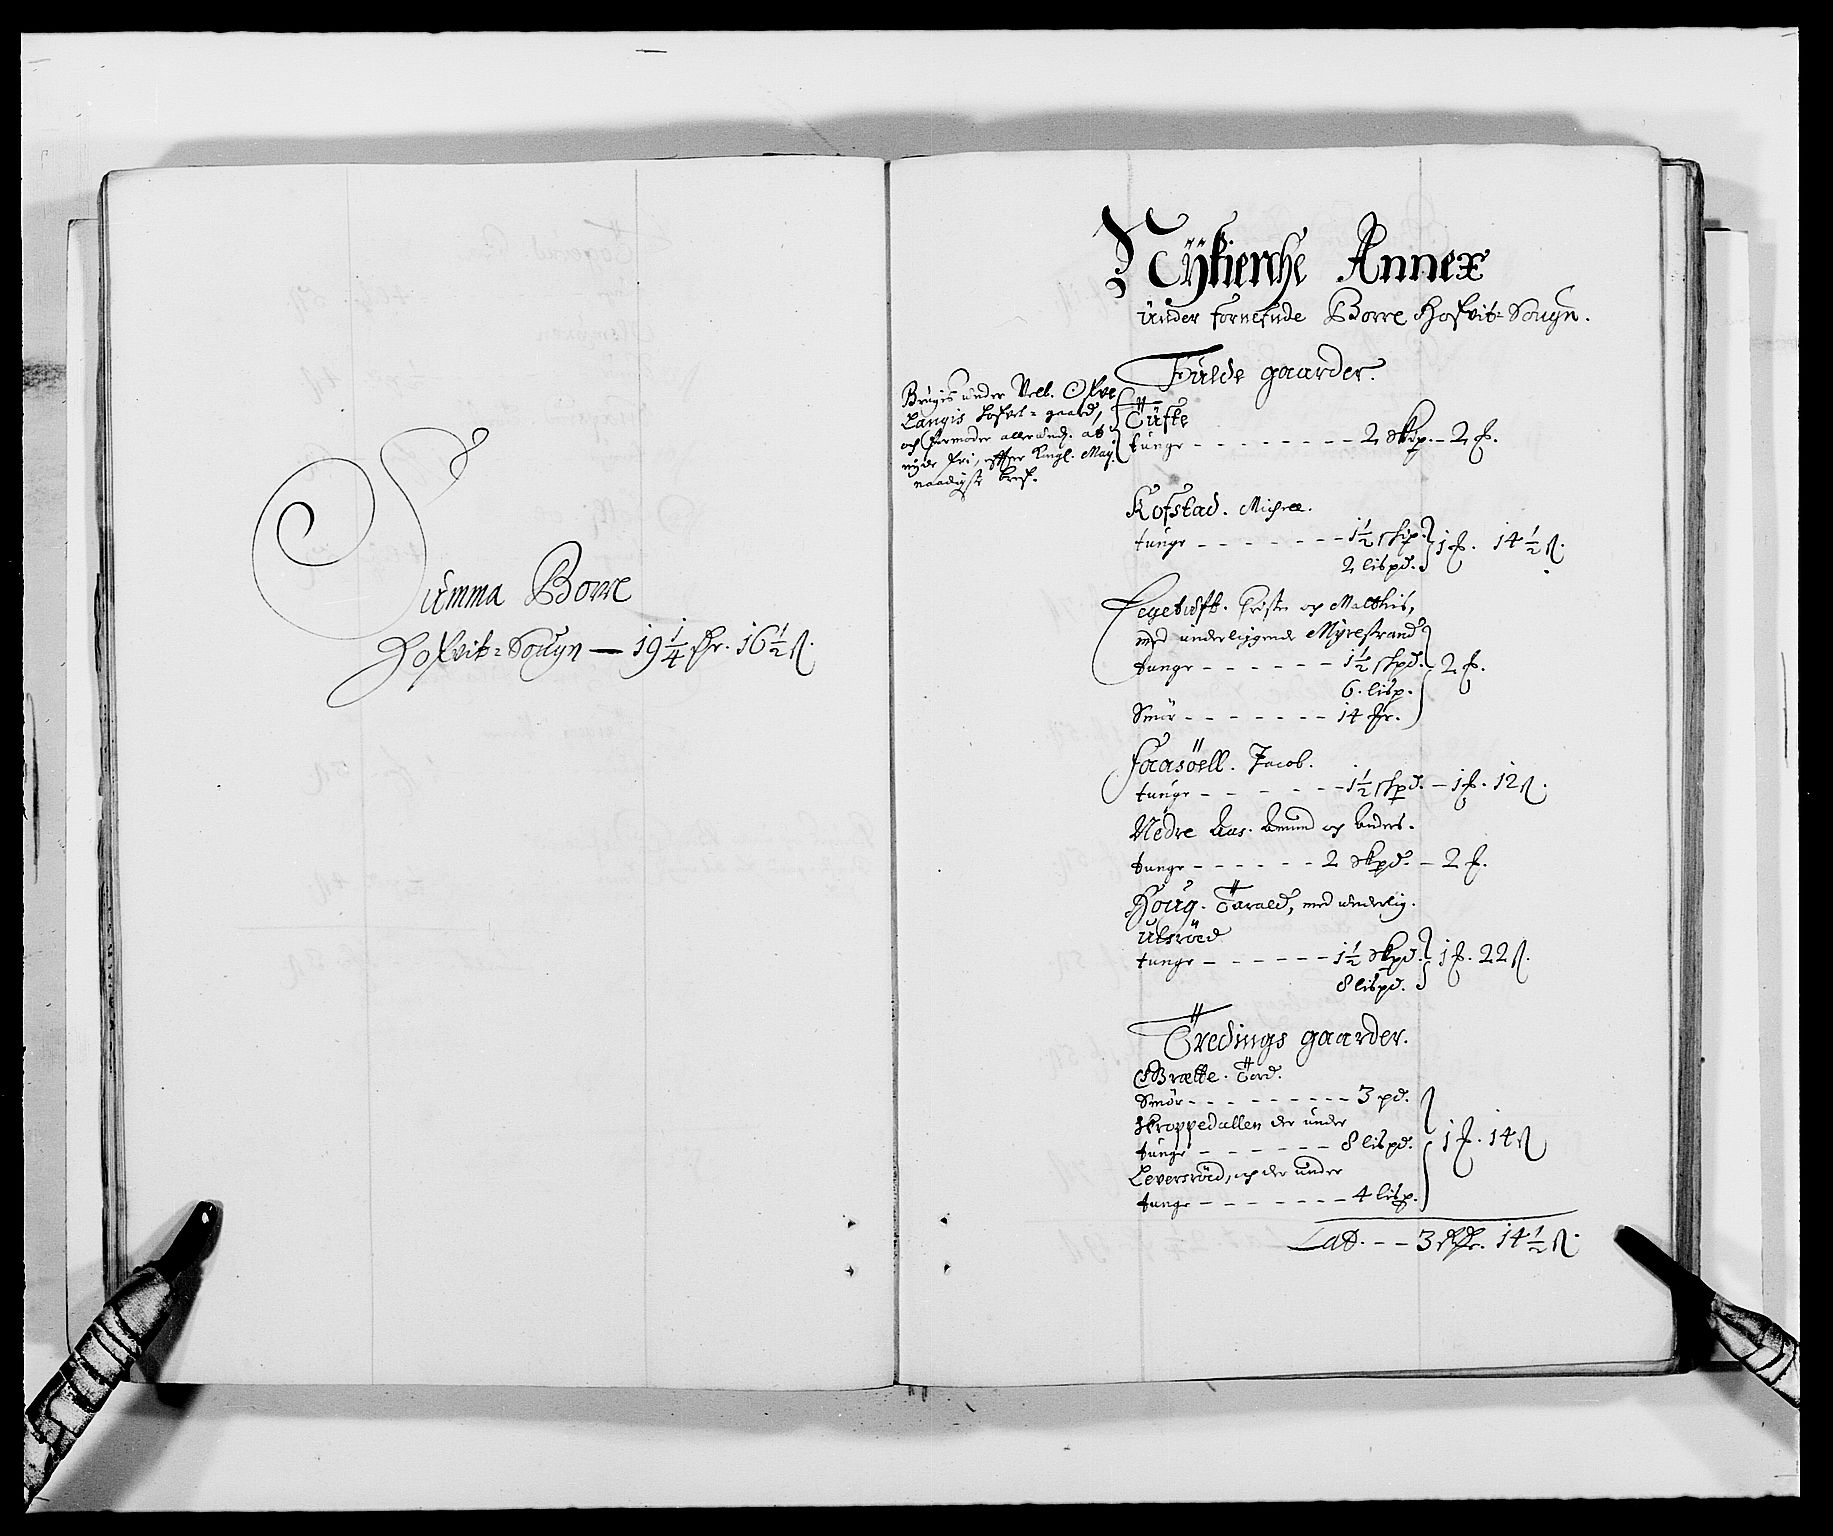 Summa Borre
Hofvit-Sougn — 19 1/4 fr. 16 1/2 ß.
Nÿkierche Annex
under fornefnde Borre Hofvit-Sougn.
Fulde gaarder.
Brugis under Velb. Ofve
Langis Hofvet-gaard,
och formoder allerund. at
nyde fri, effter Kngl. May.
naadigste bref.
Tufte
tunge - - - - - - - - 2 skip. - 2 f.
Kofstad. Michel.
tunge - - - - - - - 1 1/2 skip. 1 f. 14 1/2 ß.
2 lispd.
Legetufft. och Matthis,
med underliggende Myrestrand
tunge - - - - - - 1 1/2 skpd. 2 f.
6. lisp.
Smör - - - - - - - 14 fr.
Faasöell. Jacob.
tunge - - - - - - 1 1/2 skpd. - 1 f. 12 ß.
Nedre Aas. Amund och Anders.
tunge - - - - - - 2 skpd. - 2 f.
Houg. Tarald, med underlig.
Ulsröed
tunge - - - - - - 1 1/2 skpd. 1 f. 22 ß.
8 lispd.
Ödredings gaarder.
Brette. Tord.
Smör - - - - - - - - - 3 pd.
Skroppedallen der under
tunge - - - - - - 8 lispd. 1 f. 14 ß
Leversröed, och der under
tunge - - - - - - - - 4 lisp.
Lat. - - 3 14 1/2 ß.